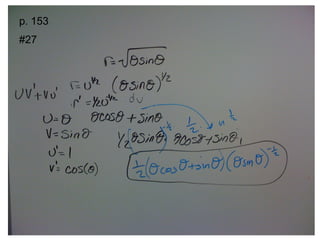 p. 153
#27
r = √θsinθ
r = u^1/2 (θsinθ)^1/2
UV' + VU'
r' = 1/2 u^-1/2 du
U = θ θcosθ + sinθ
V = sinθ
1/2 (θsinθ)^-1/2 θcosθ + sinθ
1/2 · u^-1/2
U' = 1
V' = cos(θ)
1/2 (θcosθ + sinθ)(θsinθ)^-1/2